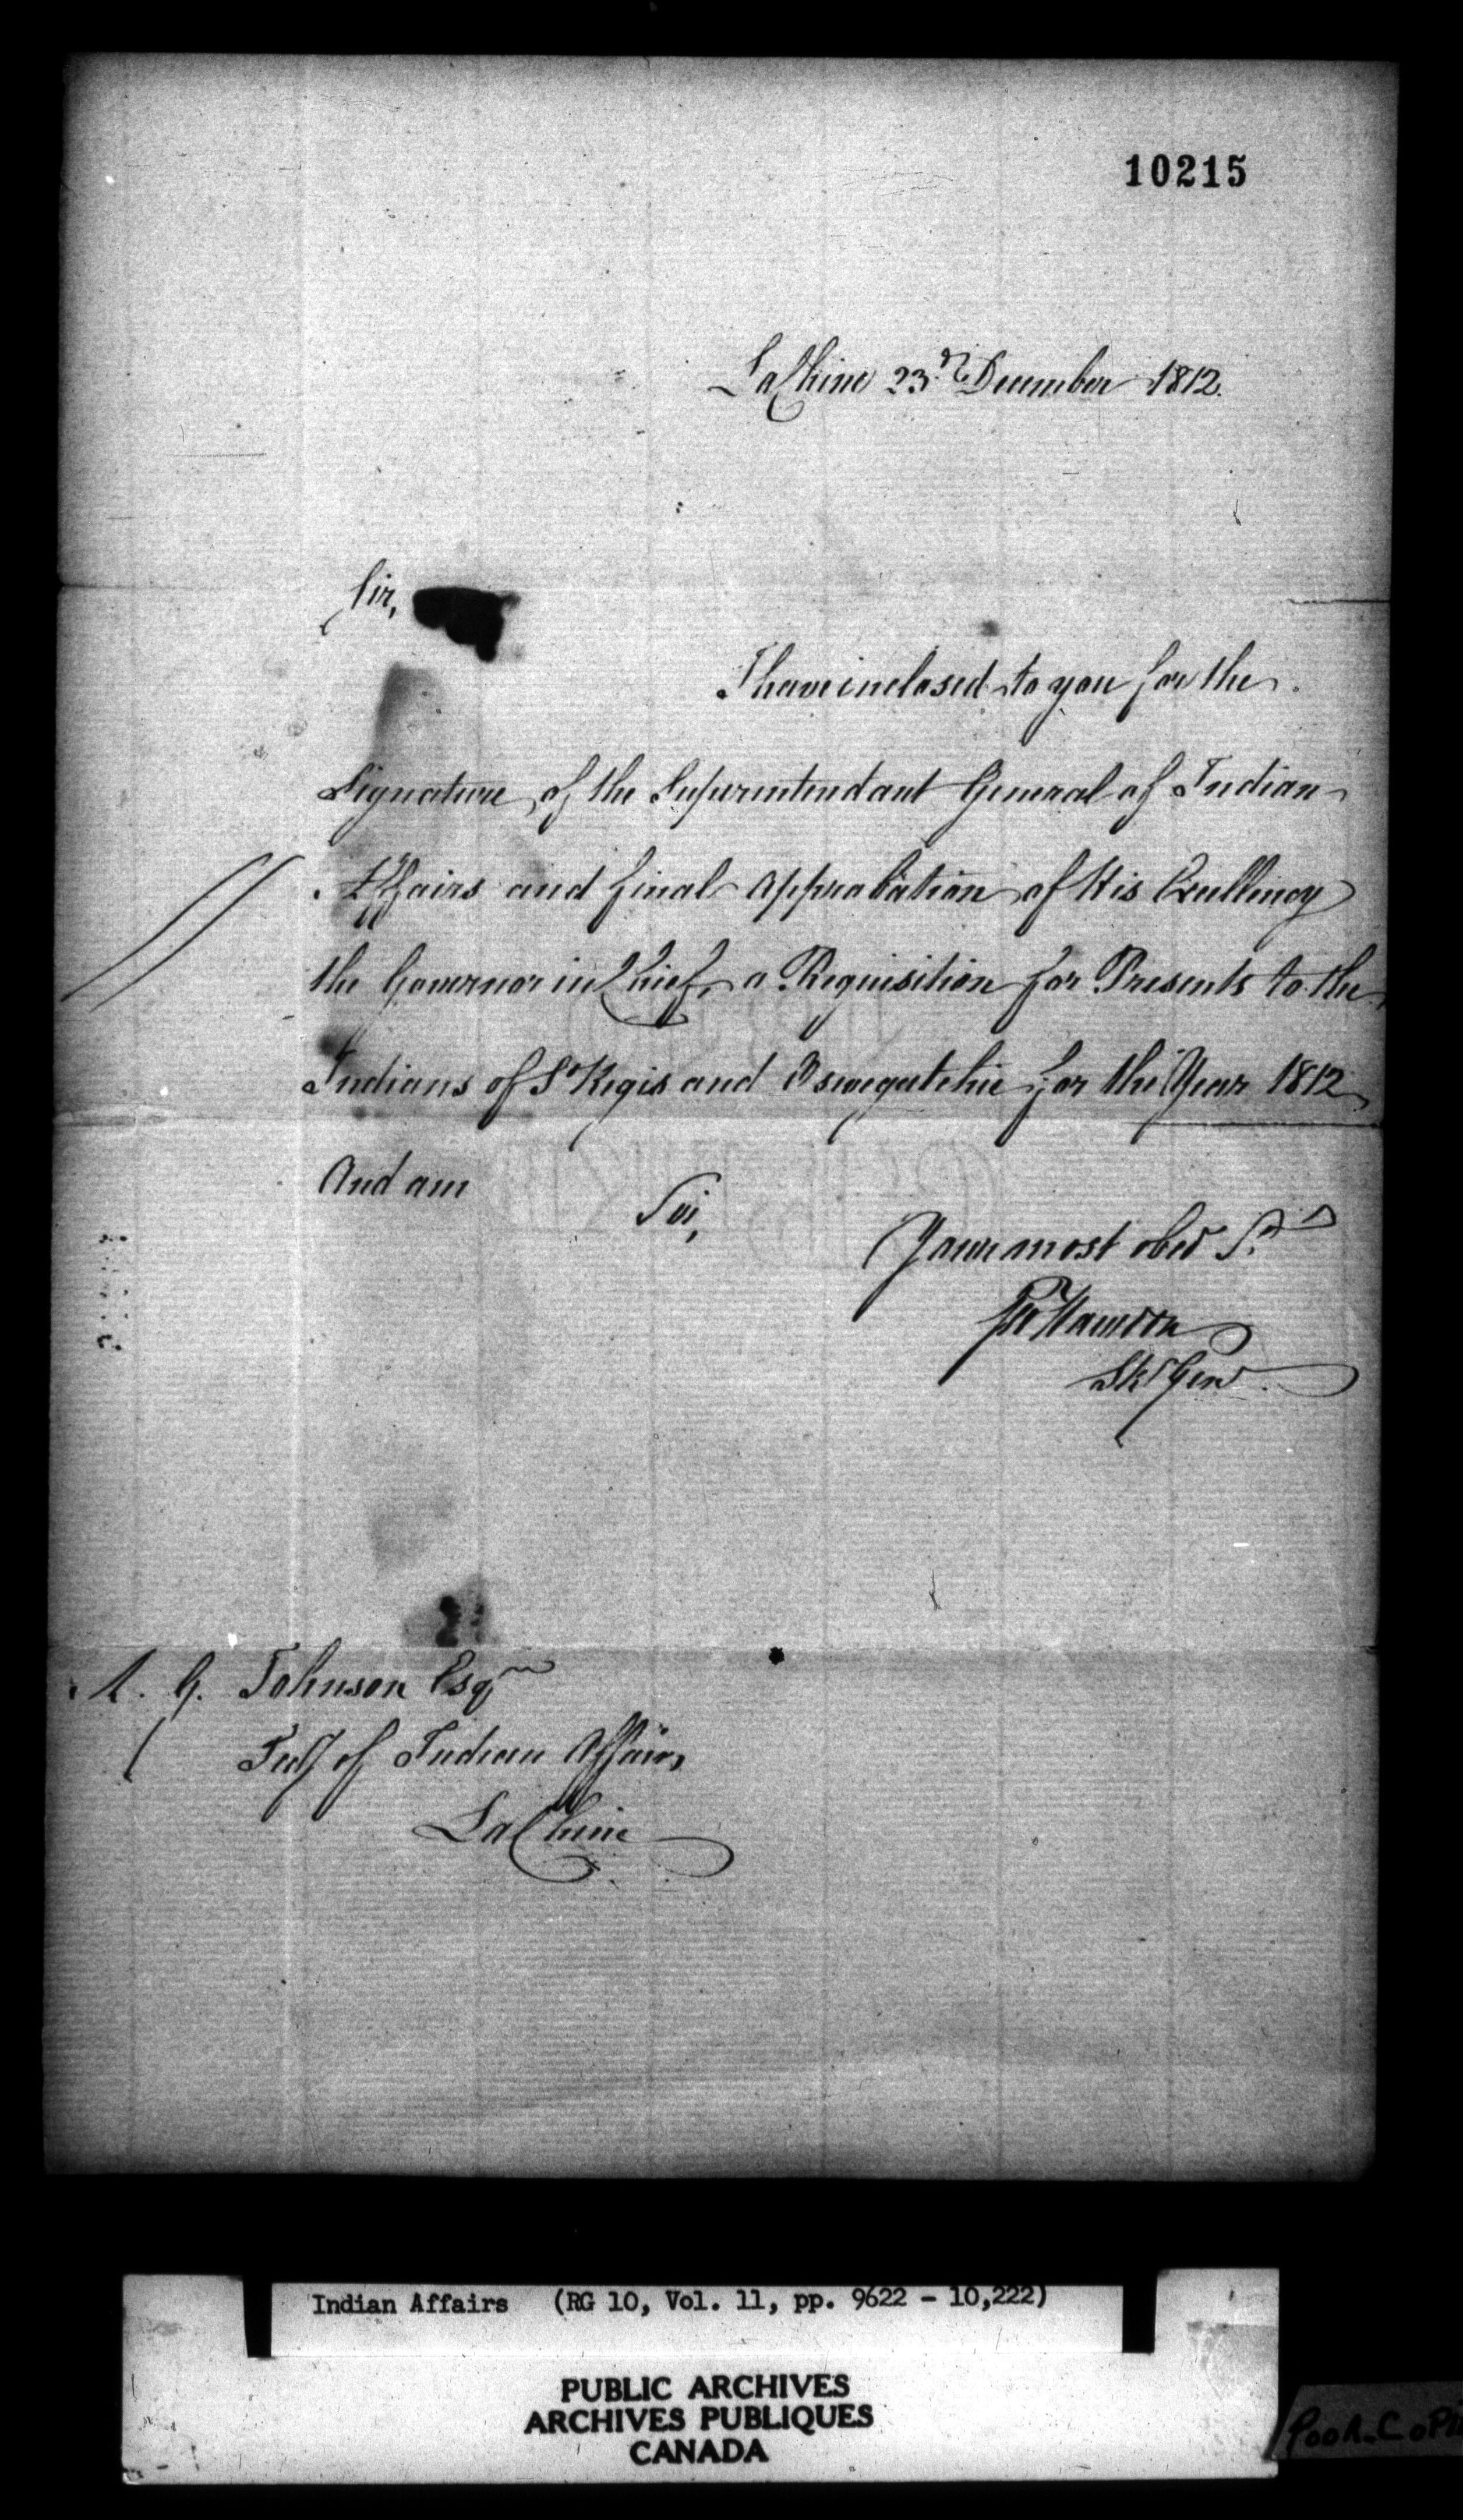 10215
LaChine 23.rd December 1812.
Sir,
I have inclosed to you for the
Signature of the Superintendant General of Indian
Affairs and final approbation of His Excellency
the Governor in Chief, a Requisition for Presents to the
Indians of St Regis and Oswegatchie for the Year 1812
And am
Sir,
Your most obed St
Hamson
Sk Genl.
G. Johnson Esqr
of Indian Affairs
LaChine
Indian Affairs (RG 10, Vol. 11, pp. 9622 - 10,222)
PUBLIC ARCHIVES
ARCHIVES PUBLIQUES
CANADA
Poor Copy